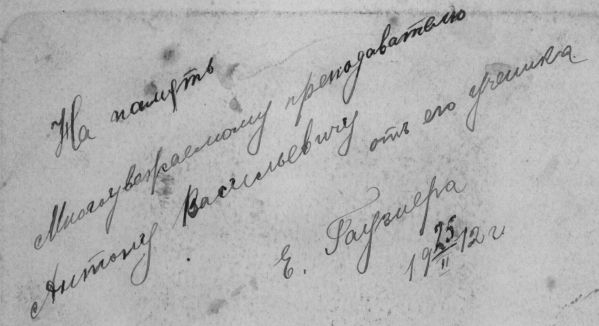 На память
Многоуважаемому преподавателю
Антону Васильевичу отъ его ученика
Е. Гаугнера
19 25/II 12 г